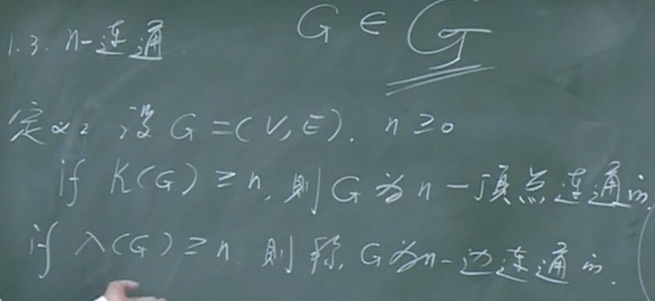 1.3. n-连通 G ∈ G
定义: 设 G=(V,E). n≥0
if K(G)≥n, 则G为n-顶点连通的.
if λ(G)≥n. 则称, G为n-边连通的.